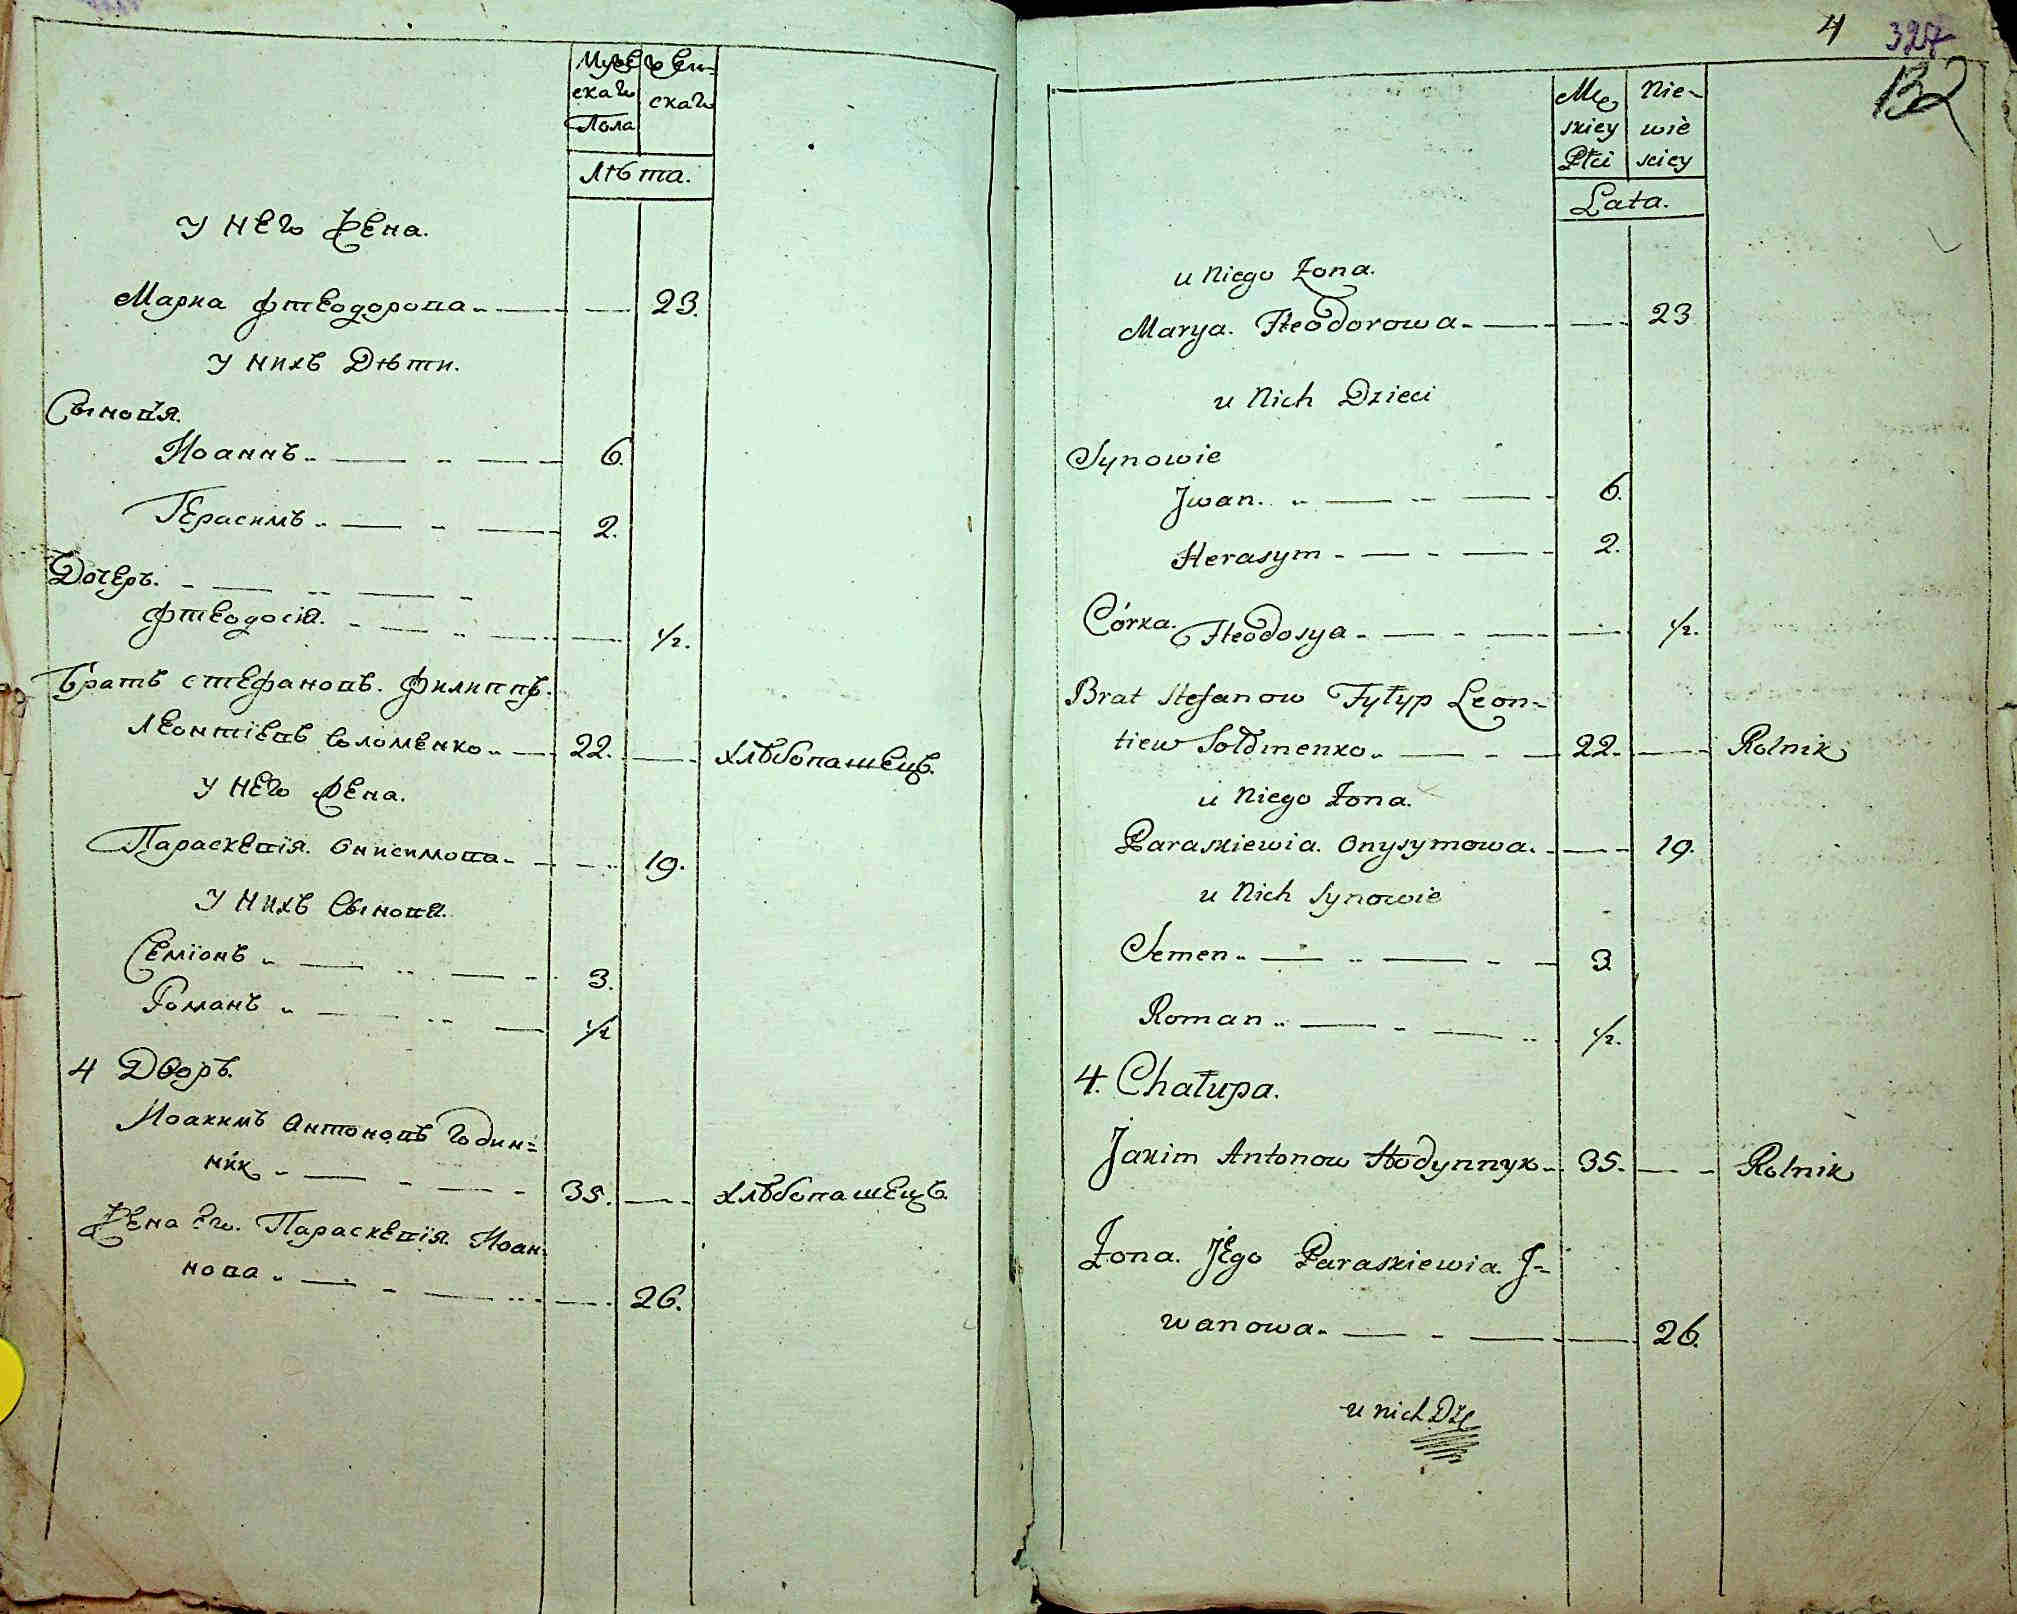 Мужескаго Пола
Женскаго
Лѣта.
У него Жена.
Мариа Фтеодорова 23.
У нихъ Дѣти.
Сыновя.
Иоаннъ 6.
Герасимъ 2.
Дочеръ.
Фтеодосія. 1/2.
Братъ Стефановъ. Филиппъ.
Леонтіевъ Соломенко 22. хлѣбопашецъ.
У него Жена.
Параскевія. Онисимова 19.
У нихъ Сыновя.
Семіонъ 3.
Романъ 1/2
4 Дворъ.
Иоакимъ Антоновъ Годин=
ник 35. хлѣбопашецъ.
Жена Его. Параскевія Иоан=
нова 26.
4
327
132
Męskiey Płci
Niewiesciey
Lata.
u Niego Żona.
Marya. Fteodorowa 23
u Nich Dzieci
Synowie
Jwan. 6.
Herasym 2.
Córka.
Fteodosya 1/2.
Brat Stefanow Fyłyp Leon=
tiew Sołomenko 22. Rolnik
u Niego Żona.
Paraskiewia. Onysymowa. 19.
u Nich Synowie
Semen 3
Roman 1/2.
4. Chałupa.
Jakim Antonow Hodynnyk 35. Rolnik
Żona. Jego Paraskiewia. J=
wanowa 26.
u nich Dzie